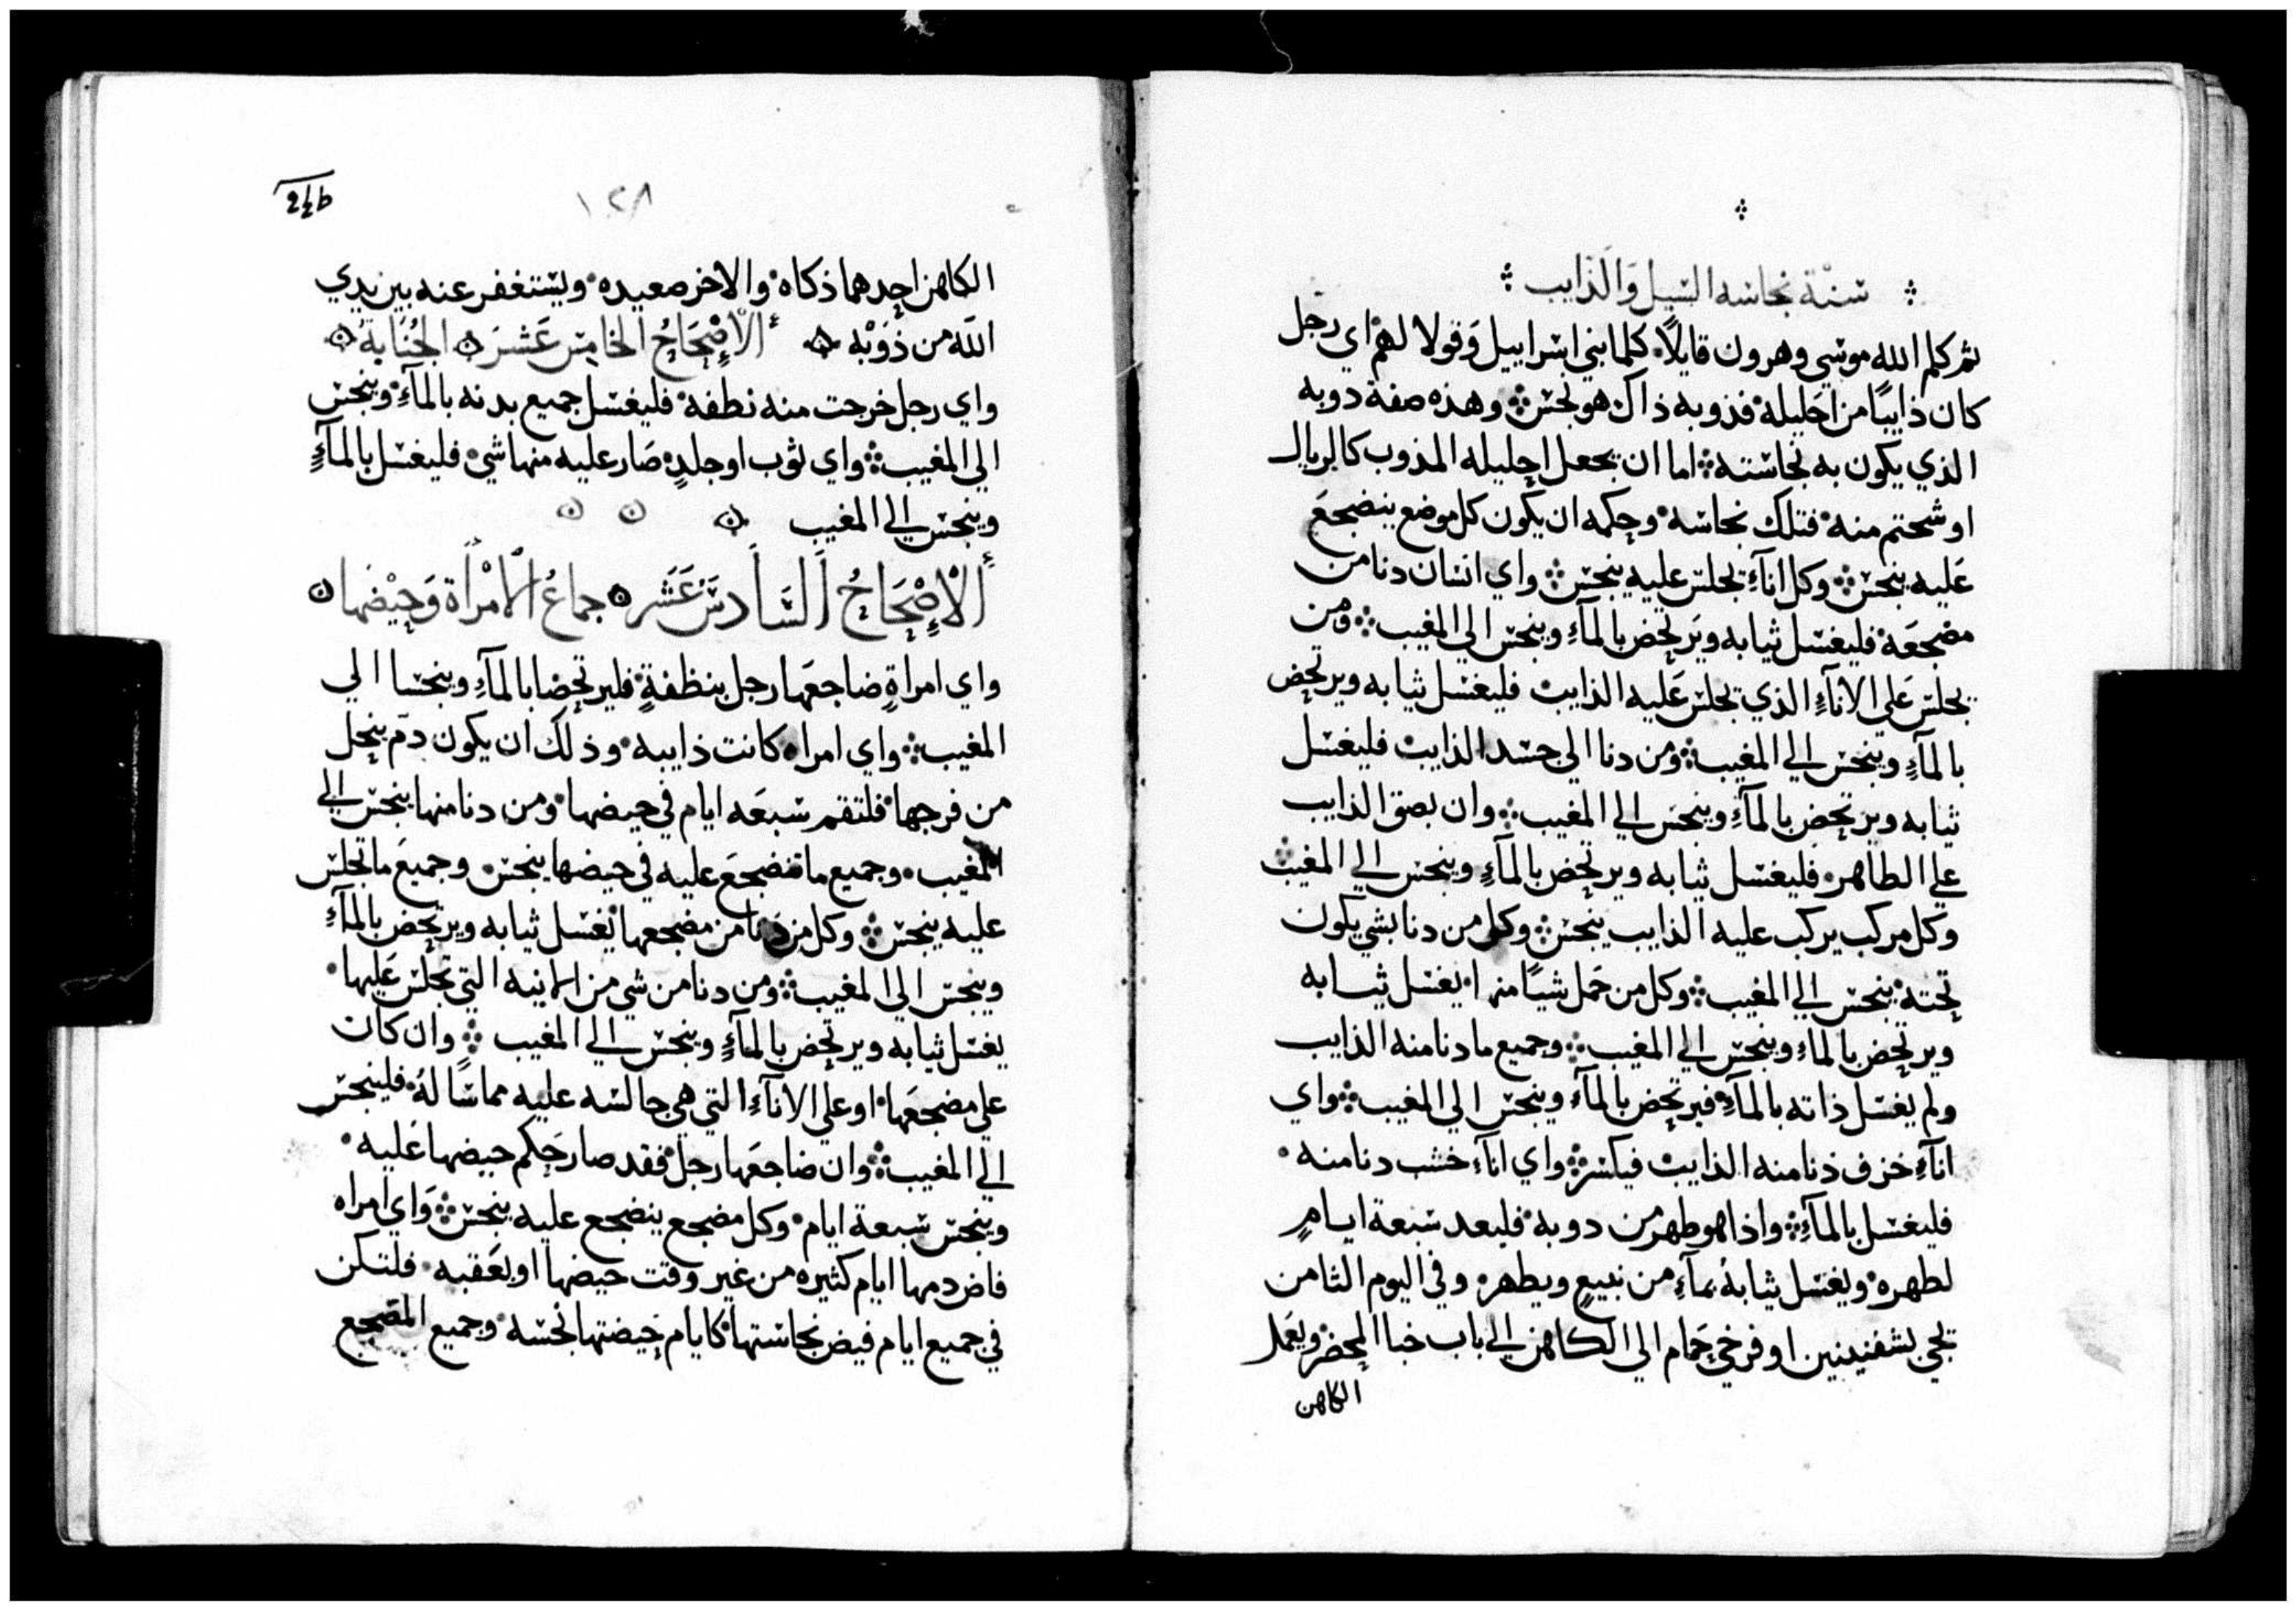 سنة نجاسه السيل والذايب
ثم كلم الله موسي وهرون قايلاً كلما بني اسراييل وقولا لهم اي رجل
كان ذايبًا من احليله فذوبه ذاك هو نجس وهذه صفة دوبه
الذي يكون به نجاسته اما ان يجعل احليله المذوب كالريال
او شحتم منه فتلك نجاسه وحكمه ان يكون كل موضع ينضجع
عليه ينجس وكل اناءٍ يجلس عليه ينجس واي انسان دنا من
مضجعه فليغسل ثيابه ويرتحض بالماءِ وينجس الي المغيب ومن
يجلس على الاناءِ الذي يجلس عليه الذايب فليغسل ثيابه ويرتحض
بالماءِ وينجس الي المغيب ومن دنا الى جسد الذايب فليغسل
ثيابه ويرتحض بالماءِ وينجس الي المغيب وان بصق الذايب
علي الطاهر فليغسل ثيابه ويرتحض بالماءِ وينجس الي المغيب
وكل مركب يركب عليه الذايب ينجس وكل من دنا بشي يكون
تحته ينجس الي المغيب وكل من حمل شيًا منها يغسل ثيابه
ويرتحض بالماءِ وينجس الي المغيب وجميع ما دنا منه الذايب
ولم يغسل ذاته بالماءِ فيرتحض بالماءِ وينجس الي المغيب واي
اناءِ خزف ذنا منه الذايب فيكسر واي اناءِ خشب دنا منه
فليغسل بالماءِ واذا هو طهر من دوبه فليعد سبعة ايامٍ
لطهره ويغسل ثيابه بماءِ من نبيعٍ ويطهر وفي اليوم الثامن
يجي بشفنينين او فرخي حمام الى الكاهن الي باب خبا المحضر ويعمل
الكاهن
١٢٨
الكاهن احدهما ذكاه والاخر صعيده ويستغفر عنه بين يدي
الله من ذوبه الاصحاح الخامس عشر الجنابة
واي رجل خرجت منه نطفه فليغسل جميع بدنه بالماءِ وينجس
الي المغيب واي ثوب او جلدٍ صار عليه منها شي فليغسل بالماءِ
وينجس الي المغيب
الاصحاح السادس عشر جماع الامرأة وحيضها
واي امراةٍ ضاجعها رجل بنظفةٍ فليرتحضا بالماءِ وينجسا الي
المغيب واي امراه كانت ذايبه وذلك ان يكون دم ينحل
من فرجها فلتقم سبعه ايام في حيضها ومن دنا منها ينجس الي
المغيب وجميع ما تنضجع عليه في حيضها ينجس وجميع ما تجلس
عليه ينجس وكل من دنا من مضجعها يغسل ثيابه ويرتحض بالماءِ
وينجس الي المغيب ومن دنا من شي من الانيه التي تجلس عليها
يغسل ثيابه ويرتحض بالماءِ وينجس الي المغيب وان كان
علي مضجعها او علي الاناءِ التي هي جالسه عليه مماسًا له فلينجس
الي المغيب وان ضاجعها رجل فقد صار حكم حيضها عليه
وينجس سبعة ايام وكل مضجع ينضجع عليه ينجس واي امراه
فاض دمها ايام كثيره من غير وقت حيضها او بعقبه فلتكن
في جميع ايام فيض نجاستها كايام حيضتها نجسه وجميع المضجع